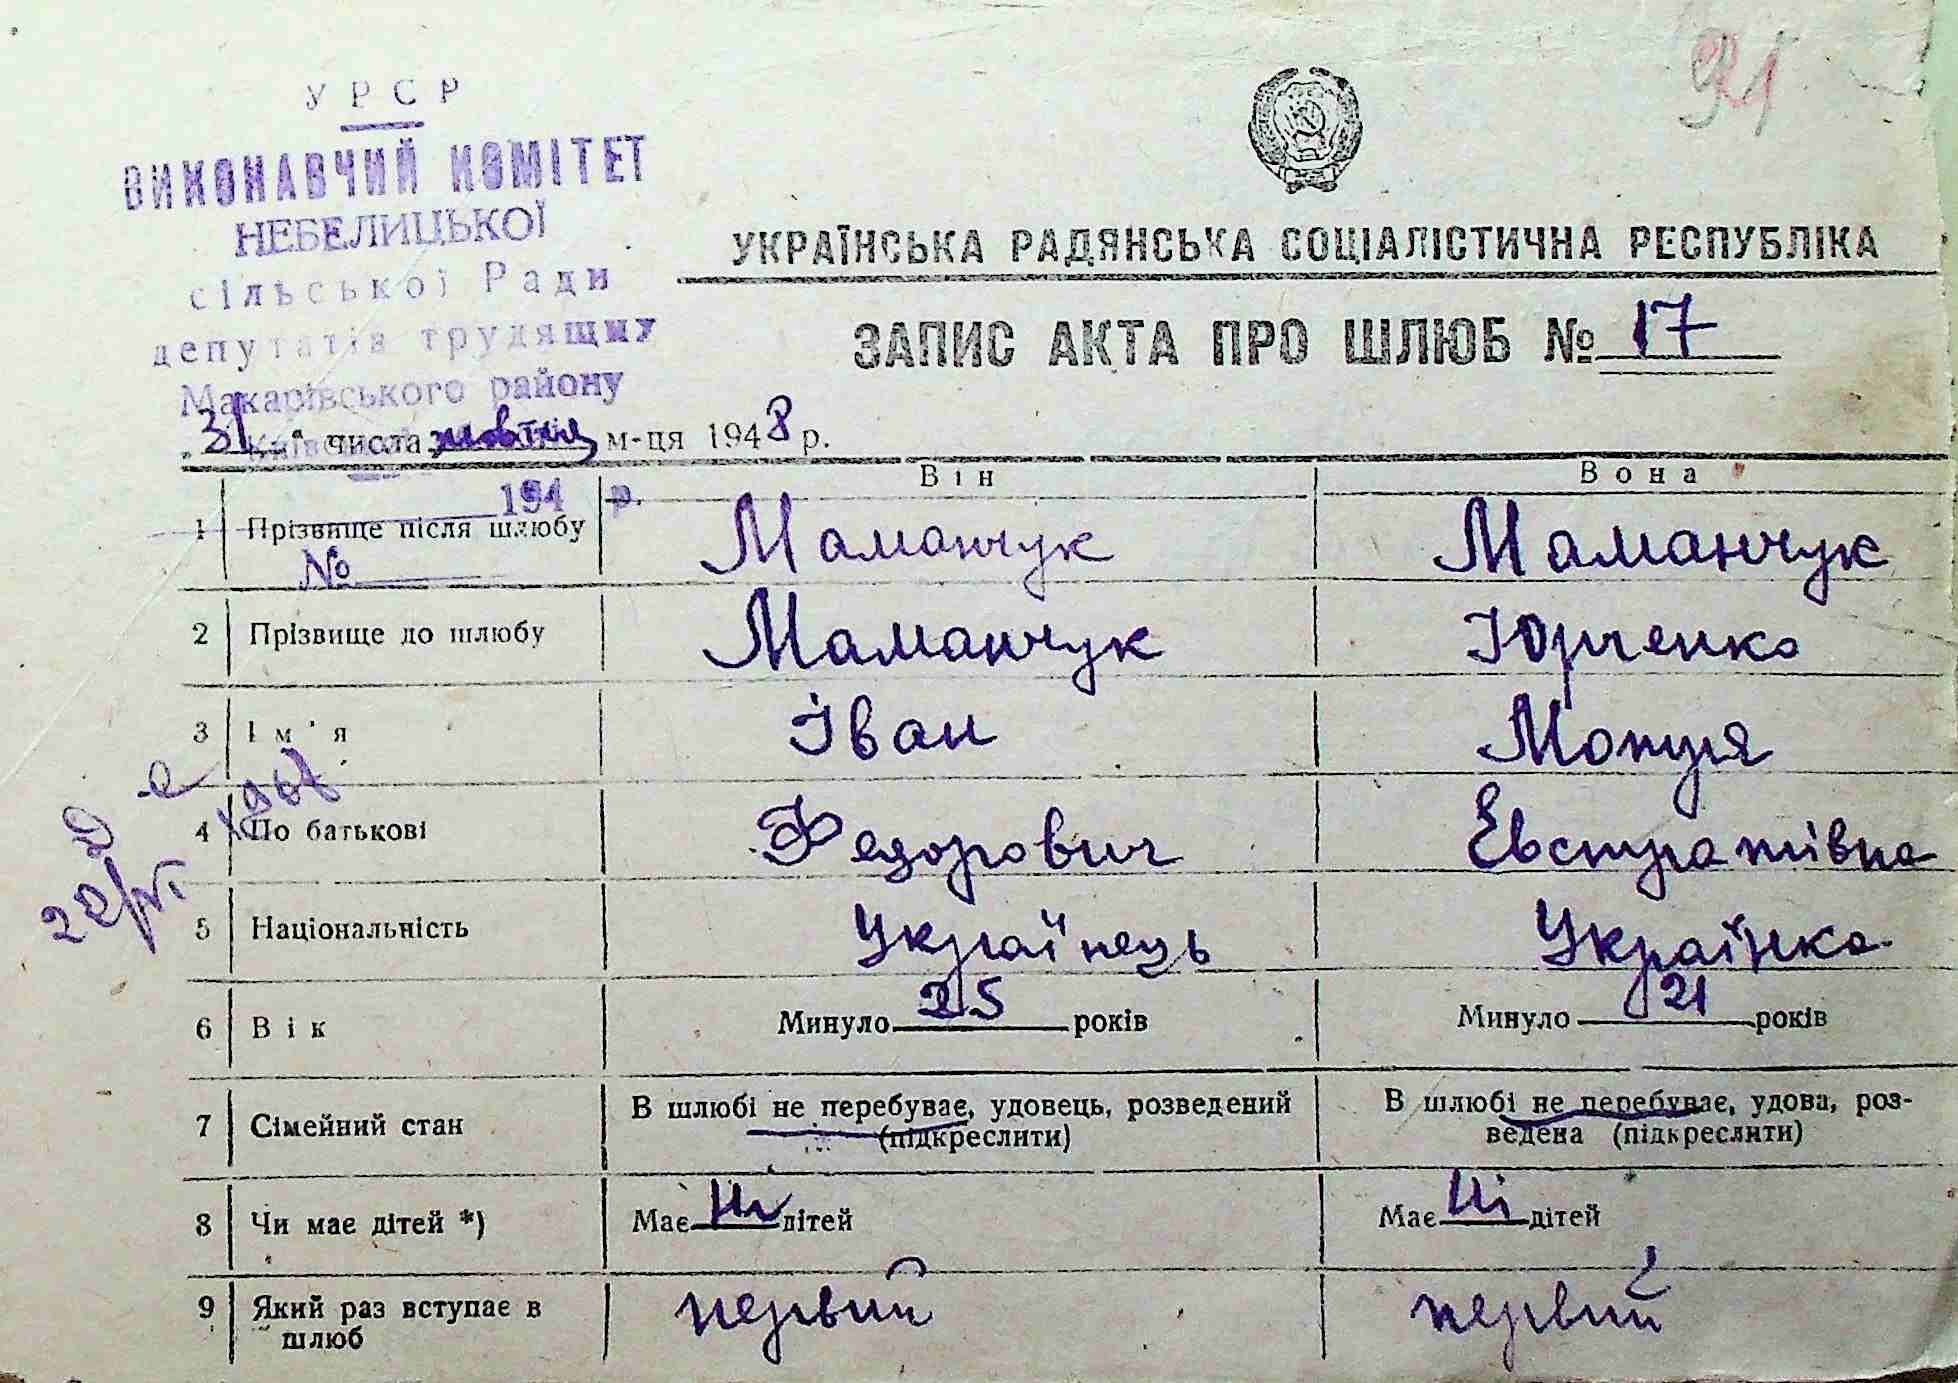 91
У Р С Р
ВИКОНАВЧИЙ КОМІТЕТ
НЕБЕЛИЦЬКОЇ
сільської Ради
депутатів трудящих
Макарівського району
194 р.
№
УКРАЇНСЬКА РАДЯНСЬКА СОЦІАЛІСТИЧНА РЕСПУБЛІКА
ЗАПИС АКТА ПРО ШЛЮБ № 17
„31“ числа жовтня м-ця 1948 р.
Він Вона
1 Прізвище після шлюбу Маманчук Маманчук
2 Прізвище до шлюбу Маманчук Юрченко
3 Ім'я Іван Мотря
4 По батькові Федорович Евстратівна
5 Національність Українець Українка
6 Вік Минуло 25 років Минуло 21 років
7 Сімейний стан В шлюбі не перебуває, удовець, розведений (підкреслити) В шлюбі не перебуває, удова, роз-
ведена (підкреслити)
8 Чи має дітей *) Має ні дітей Має ні дітей
9 Який раз вступає в первий первий
шлюб